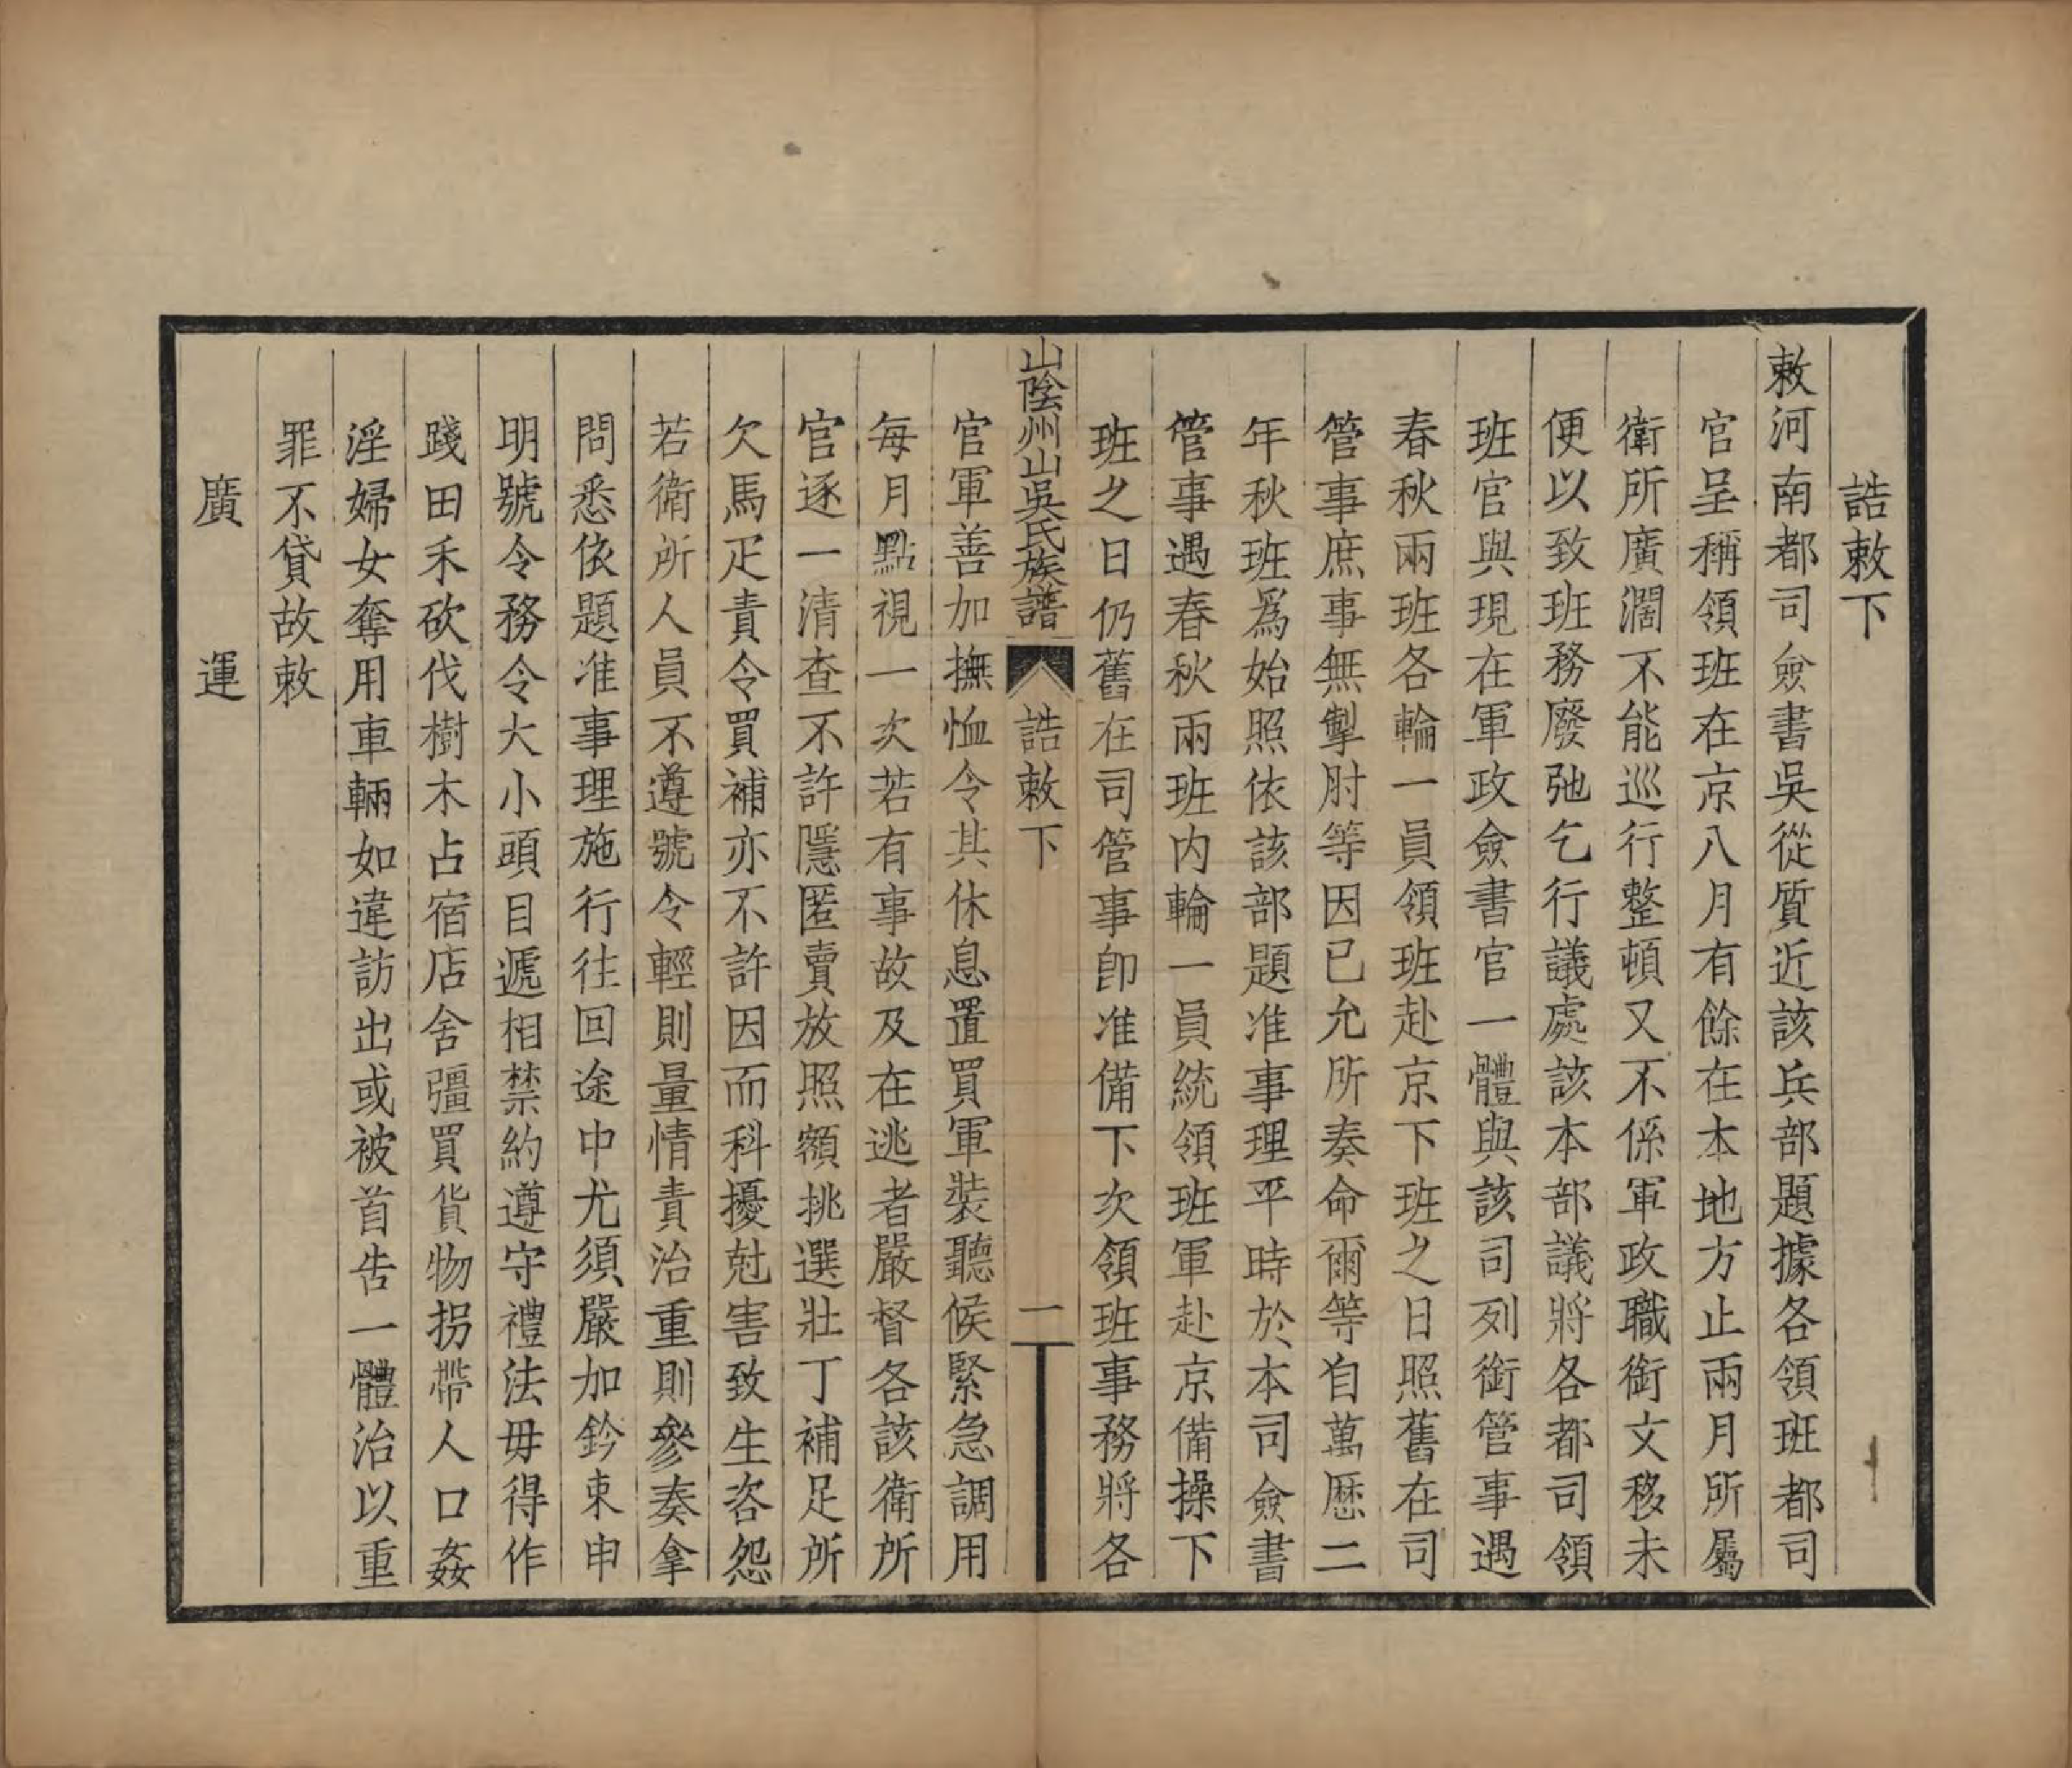 誥敕下
敕河南都司僉書吳從質近該兵部題據各領班都司
官呈稱領班在京八月有餘在本地方止兩月所屬
衛所廣濶不能巡行整頓又不係軍政職銜文移未
便以致班務廢弛乞行議處該本部議將各都司領
班官與現在軍政僉書官一體與該司列銜管事遇
春秋兩班各輪一員領班赴京下班之日照舊在司
管事庶事無掣肘等因已允所奏命爾等自萬歷二
年秋班爲始照依該部題准事理平時於本司僉書
管事遇春秋兩班内輪一員統領班軍赴京備操下
班之日仍舊在司管事卽准備下次領班事務將各
山陰州山吳氏族譜 誥敕下 一
官軍善加撫恤令其休息置買軍裝聽候緊急調用
每月點視一次若有事故及在逃者嚴督各該衛所
官逐一清查不許隱匿賣放照額挑選壯丁補足所
欠馬疋責令買補亦不許因而科擾尅害致生咨怨
若衛所人員不遵號令輕則量情責治重則參奏拿
問悉依題准事理施行往回途中尤須嚴加鈐束申
明號令務令大小頭目遞相禁約遵守禮法毋得作
踐田禾砍伐樹木占宿店舍彊買貨物拐帶人口姦
淫婦女奪用車輛如違訪出或被首告一體治以重
罪不貸故敕
廣運